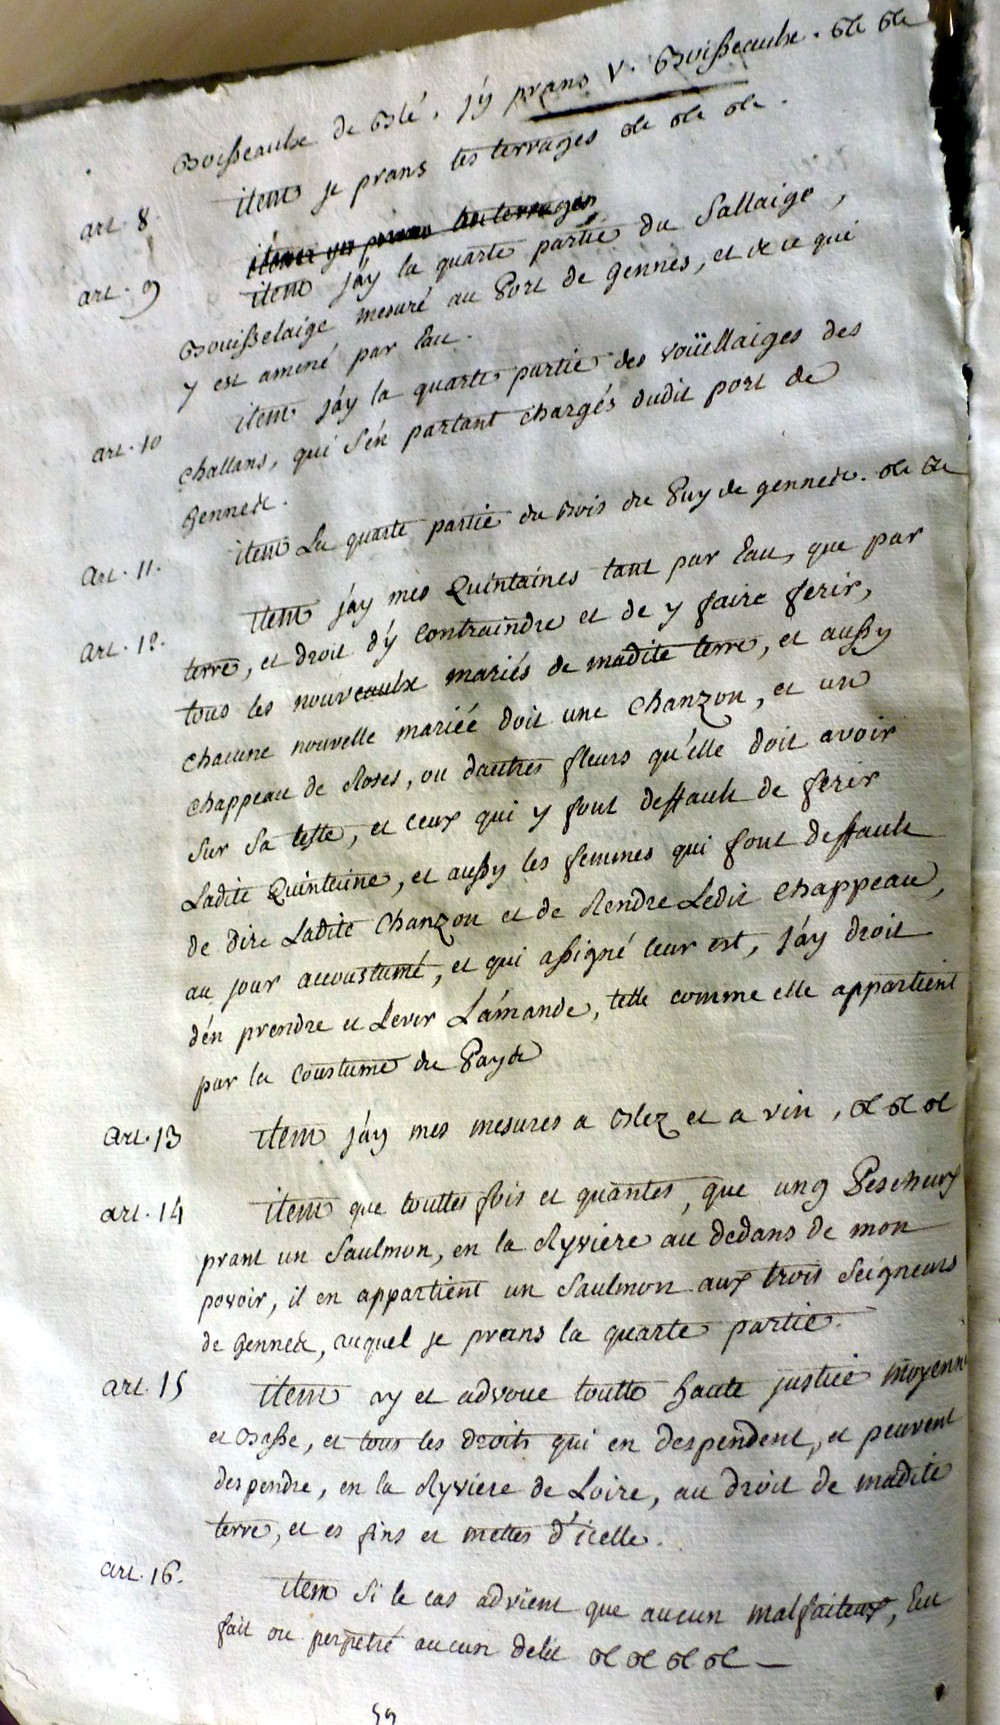 Boisseaulx de Blé, j'y prans v. Boisseaulx.
art. 8 item je prans les terrages
art. 9 item j'ay la quarte partie du Sallaige,
Bouisselaige mesuré au Port de gennes, et de ce qui
y est amené par Eau.
art. 10 item j'ay la quarte partie des voüellaiges des
challans, qui s'én partant chargés dudit port de
Gennes.
art. 11. item La quarte partie du Bois du Puy de gennes.
art. 12. item j'ay mes Quintaines tant par Eau, que par
terre, et droit d'y contraindre et de y faire ferir,
tous les nouveaulx mariés de madite terre, et aussy
chacune nouvelle mariée doit une chanzon, et un
chappeau de Roses, ou dautres fleurs qu'elle doit avoir
sur sa teste, et ceux qui y font deffault de ferir
Ladite Quintaine, et aussy les femmes qui font deffault
de dire Ladite Chanzon et de Rendre Ledit chappeau,
au jour accoustumé, et qui assigné leur est, j'ay droit
d'én prendre et Lever L'amande, telle comme elle appartient
par la coustume du Pays
art. 13 item j'ay mes mesures a Blez et a vin,
art. 14 item que touttes fois et quantes, que ung Pescheux
prant un Saulmon, en la Ryviere au dedans de mon
povoir, il en appartient un Saulmon aux trois Seigneurs
de Gennes, auquel je prans la quarte partie.
art. 15 item ay et advoue toutte haute justice moyenne
et Basse, et tous les droits qui en despendent, et peuvent
despendre, en la Ryviere de Loire, au droit de madite
terre, et es fins et mettes d'icelle.
art. 16. item Si le cas advient que aucun malfaiteux, Eut
fait ou perpetré aucun delit
59